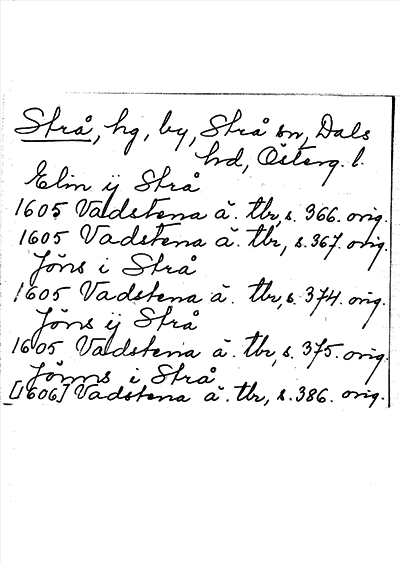 Strå, hg, by, Strå sn, Dals
hd, Österg. l.
Elin ij Strå
1605 Vadstena ä. tbr, s. 366. orig.
1605 Vadstena ä. tbr, s. 367. orig.
Jöns i Strå
1605 Vadstena ä. tbr, s. 374. orig.
Jöns ij Strå
1605 Vadstena ä. tbr, s. 375. orig.
Jönns i Strå
[1606] Vadstena ä. tbr, s. 386. orig.